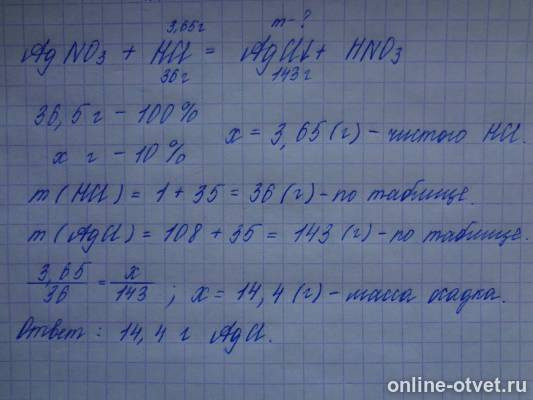 3,65г m-?
AgNO3 + HCl = AgCl + HNO3
36г 143г
36,5 г - 100 %
x г - 10 %
x = 3,65 (г) - чистого HCl.
m (HCl) = 1 + 35 = 36 (г) - по таблице.
m (AgCl) = 108 + 35 = 143 (г) - по таблице.
3,65/36 = x/143 ; x = 14,4 (г) - масса осадка.
Ответ : 14,4 г AgCl.
online-otvet.ru